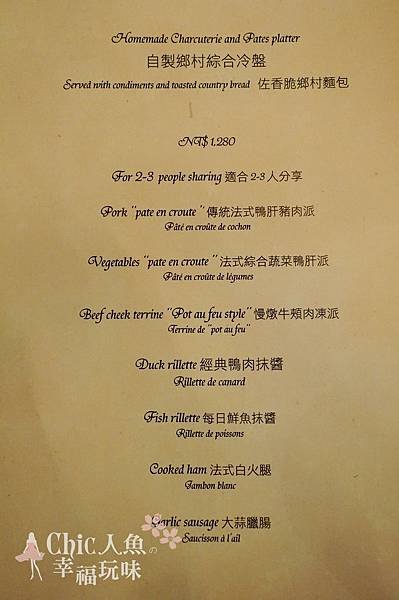 Homemade Charcuterie and Pates platter
自製鄉村綜合冷盤
Served with condiments and toasted country bread 佐香脆鄉村麵包
NT$ 1,280
For 2-3 people sharing 適合 2-3 人分享
Pork "pate en croute" 傳統法式鴨肝豬肉派
Pâté en croûte de cochon
Vegetables "pate en croute" 法式綜合蔬菜鴨肝派
Pâté en croûte de légumes
Beef cheek terrine "Pot au feu style" 慢燉牛頰肉凍派
Terrine de "pot au feu"
Duck rillette 經典鴨肉抹醬
Rillette de canard
Fish rillette 每日鮮魚抹醬
Rillette de poissons
Cooked ham 法式白火腿
Jambon blanc
Garlic sausage 大蒜臘腸
Saucisson à l'ail
Chic人魚の
幸福玩味